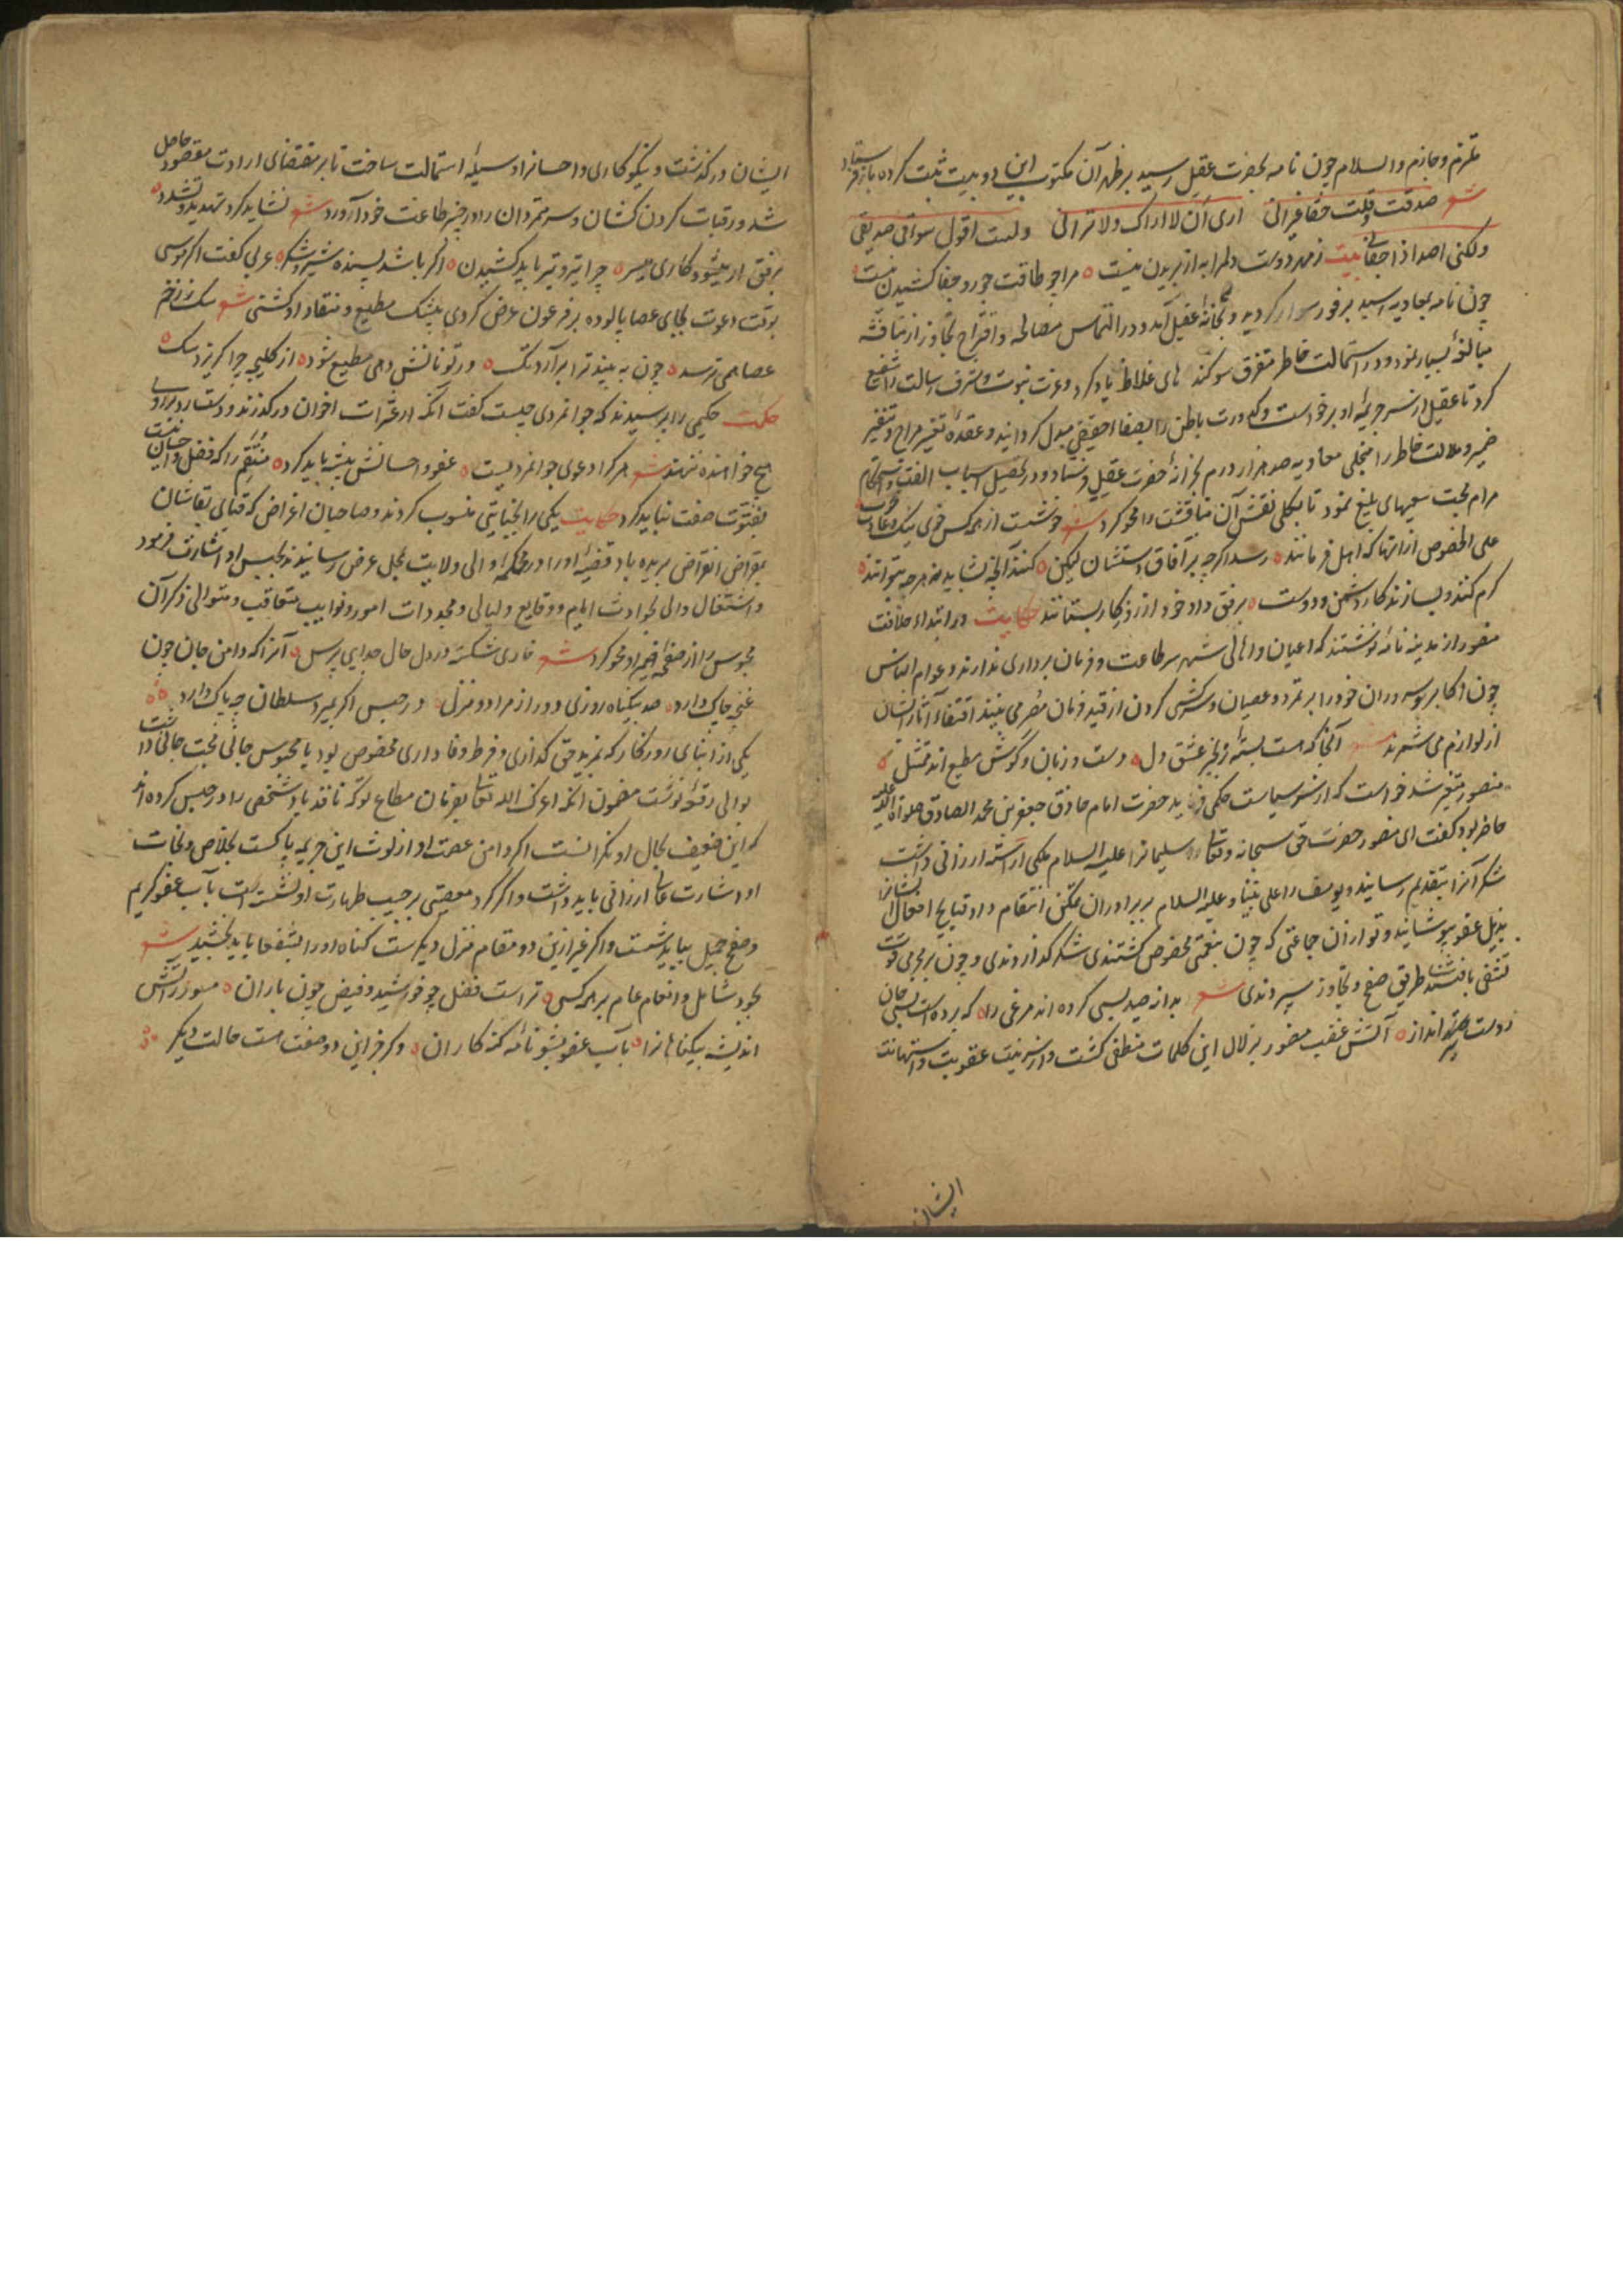 ملتزم و جازم والسلام چون نامه بحضرت عقیل رسید بر ظهر آن مکتوب این دو بیت ثبت کرده باز فرستاد
شعر صدقت وقلت حقا غیر انی اری ان لا اراک ولا ترانی ولست اقول سوأ فی صدیقی
ولکنی اصد اذا جفانی بیت ز مهر دوست دلم را به از بریدن نیست مرا چو طاقت جور و جفا کشیدن نیست
چون نامه بمعاویه رسید بر فور سوار گردید و بخانهٔ عقیل آمد و در التماس مصالحه و اقتراح تجاوز از مناقشه
مبالغهٔ بسیار نمود و در استمالت خاطر متفرق سوکند های غلاظ یاد کرد و عزت نبوت و شرف رسالت را شفیع
کرد تا عقیل از سر جریمهٔ او برخاست و کدورت باطن را بصفاء حقیقی مبدل کردانید و عقدهٔ تغییر مزاج و تنفیر
ضمیر و ملالت خاطر را منجلی معاویه صد هزار درم بخزانهٔ حضرت عقیل فرستاد و در تحصیل اسباب الفت و استحکام
مرام محبت سعیهای بلیغ نمود تا بکلی نقش آن مناقشت را محو کرد شعر خوشست از همه کس خوی نیک و عادت خوب
علی الخصوص از انها که اهل فرمانند رسد اکرچه بر آفاق دستشان لیکن کنند آنچه نشاید نه هرچه بتوانند
کرم کنند و بسازند کار دشمن و دوست برفق داد خود از روزکار بستانند حکایت در ابتداء خلافت
منصور از مدینه نامهٔ نوشتند که اعیان و اهالی شهر سر طاعت و فرمان برداری ندارند و عوام الناس
چون اکابر و سروران خود را بر تمرد و عصیان و سرکشی کردن از قید فرمان مصر می بینند اقتفاء آثار ایشان
از لوازم می شمرند شعر آنجا که هست بستهٔ زنجیر عشق دل دست و زبان و کوش مطیع اند ممتثل
منصور متغیر شد خواست که از سر سیاست حکمی فرماید حضرت امام صادق جعفر بن محمد الصادق صلوات الله علیه
حاضر بود کفت ای منصور حضرت حق سبحانه وتعالی سلیمانرا علیه السلام ملکی آراسته ارزانی داشت
شکر آنرا بتقدیم رسانید و یوسف را علی نبینا و علیه السلام بر برادران تمکن انتقام داد قبایح افعال ایشانرا
بذیل عفو بپوشانید و تو از آن جماعتی که چون بنعمتی مخصوص کشتندی شکر کذاردندی و چون بر مجرمی قوت
تشفی یافتندی طریق صفح و تجاوز سپردندی شعر بدانه صید بسی کرده اند مرغی را که برده است بسی جان
ز دست تیر انداز آتش غضب منصور بزلال این کلمات منطفی کشت و از سر نیت عقوبت و استهانت
ایشان
ایشان درکذشت و نیکوکاری و احسانرا وسیلهٔ استمالت ساخت تا بر مقتضای ارادت مقصود حاصل
شد و رقبات کردن کشان و سر متمردان را در چنبر طاعت خود آورد شعر نشاید کرد تهدید و تشدد
برفق ار میشود کاری میسر چرا تیر و تبر باید کشیدن اکر باشد بسنده شیر و شکر عربی کفت اکر موسی
بوقت دعوت بجای عصا پالوده بر فرعون عرض کردی بیشک مطیع و منقاد او کشتی شعر سک ز زخم
عصا همی ترسد چون به بیند ترا برآرد تک ور تو نانش دهی مطیع شود از کلیچه چرا کریزد سک
حکمت حکیمی را پرسیدند که جوانمردی چیست کفت آنکه از عثرات اخوان درکذرند و دست رد بر روی
هیچ خواهنده ننهند شعر هر کرا دعوی جوانمردیست عفو و احسانش پیشه باید کرد منتقم را که فضل و احسان نیست
بفتوت صفت نباید کرد حکایت یکی را بخیانتی منسوب کردند و صاحبان اغراض که قبای بقاشان
بمقراض انقراض بریده باد قضیهٔ او را در محکمهٔ والی ولایت بمحل عرض رسانیدند بحبس او اشارت فرمود
و اشتغال والی بحوادث ایام و وقایع و لیالی و مجددات امور و نوایب متعاقب و متوالی ذکر آن
محبوس را از صفحهٔ ضمیر او محو کرد شعر خاری شکسته در دل حال جدایی پرس آنرا که دامن جان چون
غنچه چاک دارد صد بیکناه روزی دور از مراد و منزل در حبس اکر بمیرد سلطان چه باک دارد
یکی از ابنای روزکار که بمزید حق کذاری و فرط وفا داری مخصوص بود با محبوس جانی محبت جانی داشت
بوالی رقعهٔ نوشت مضمون آنکه اعزک الله تعالی بفرمان مطاع تو که نافذ باد شخصی را در حبس کرده اند
که این ضعیف بحال او نکرانست اکر دامن عصمت او از لوث این جریمه پاکست بخلاص و نجات
او اشارت عالی ارزانی باید داشت و اکر کرد معصیتی بر جیب طهارت او نشسته است بآب عفو کریم
و صفح جمیل بباید شست و اکر غیر ازین دو مقام منزل دیکرست کناه او را بشفعا باید بخشید شعر
بجود شامل و انعام عام بر همه کسی تراست فضل چو خورشید و فیض چون باران مسوز ز آتش
اندیشه بیکناهانرا بآب عفو بشو نامهٔ کنه کاران وکر جز این دو صفت هست حالت دیکر